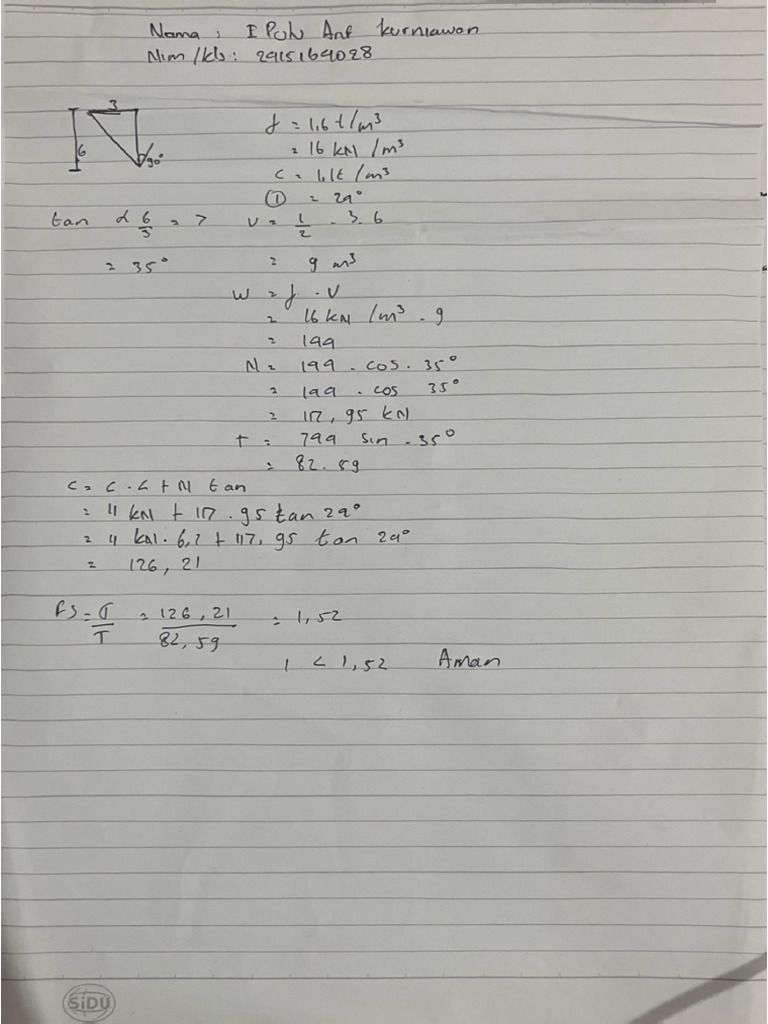 Nama : I Putu Arif kurniawan
Nim /kls : 2915164028
3
6
90°
γ = 1,6 t/m³
= 16 kN /m³
c = 1,1t /m³
① = 29°
tan α 6/3 = > v = 1/2 . 3.6
= 35° = 9 m³
W = γ . V
= 16 kN /m³ . 9
= 144
N = 144 . cos . 35°
= 144 . cos 35°
= 117,95 kN
T = 144 sin . 35°
= 82.59
C = C . L + N tan
= 11 kN + 117 . 95 tan 29°
= 11 kN . 6,7 + 117, 95 tan 29°
= 126, 21
FS = σ/T = 126,21/82,59 = 1,52
1 < 1,52 Aman
SiDU